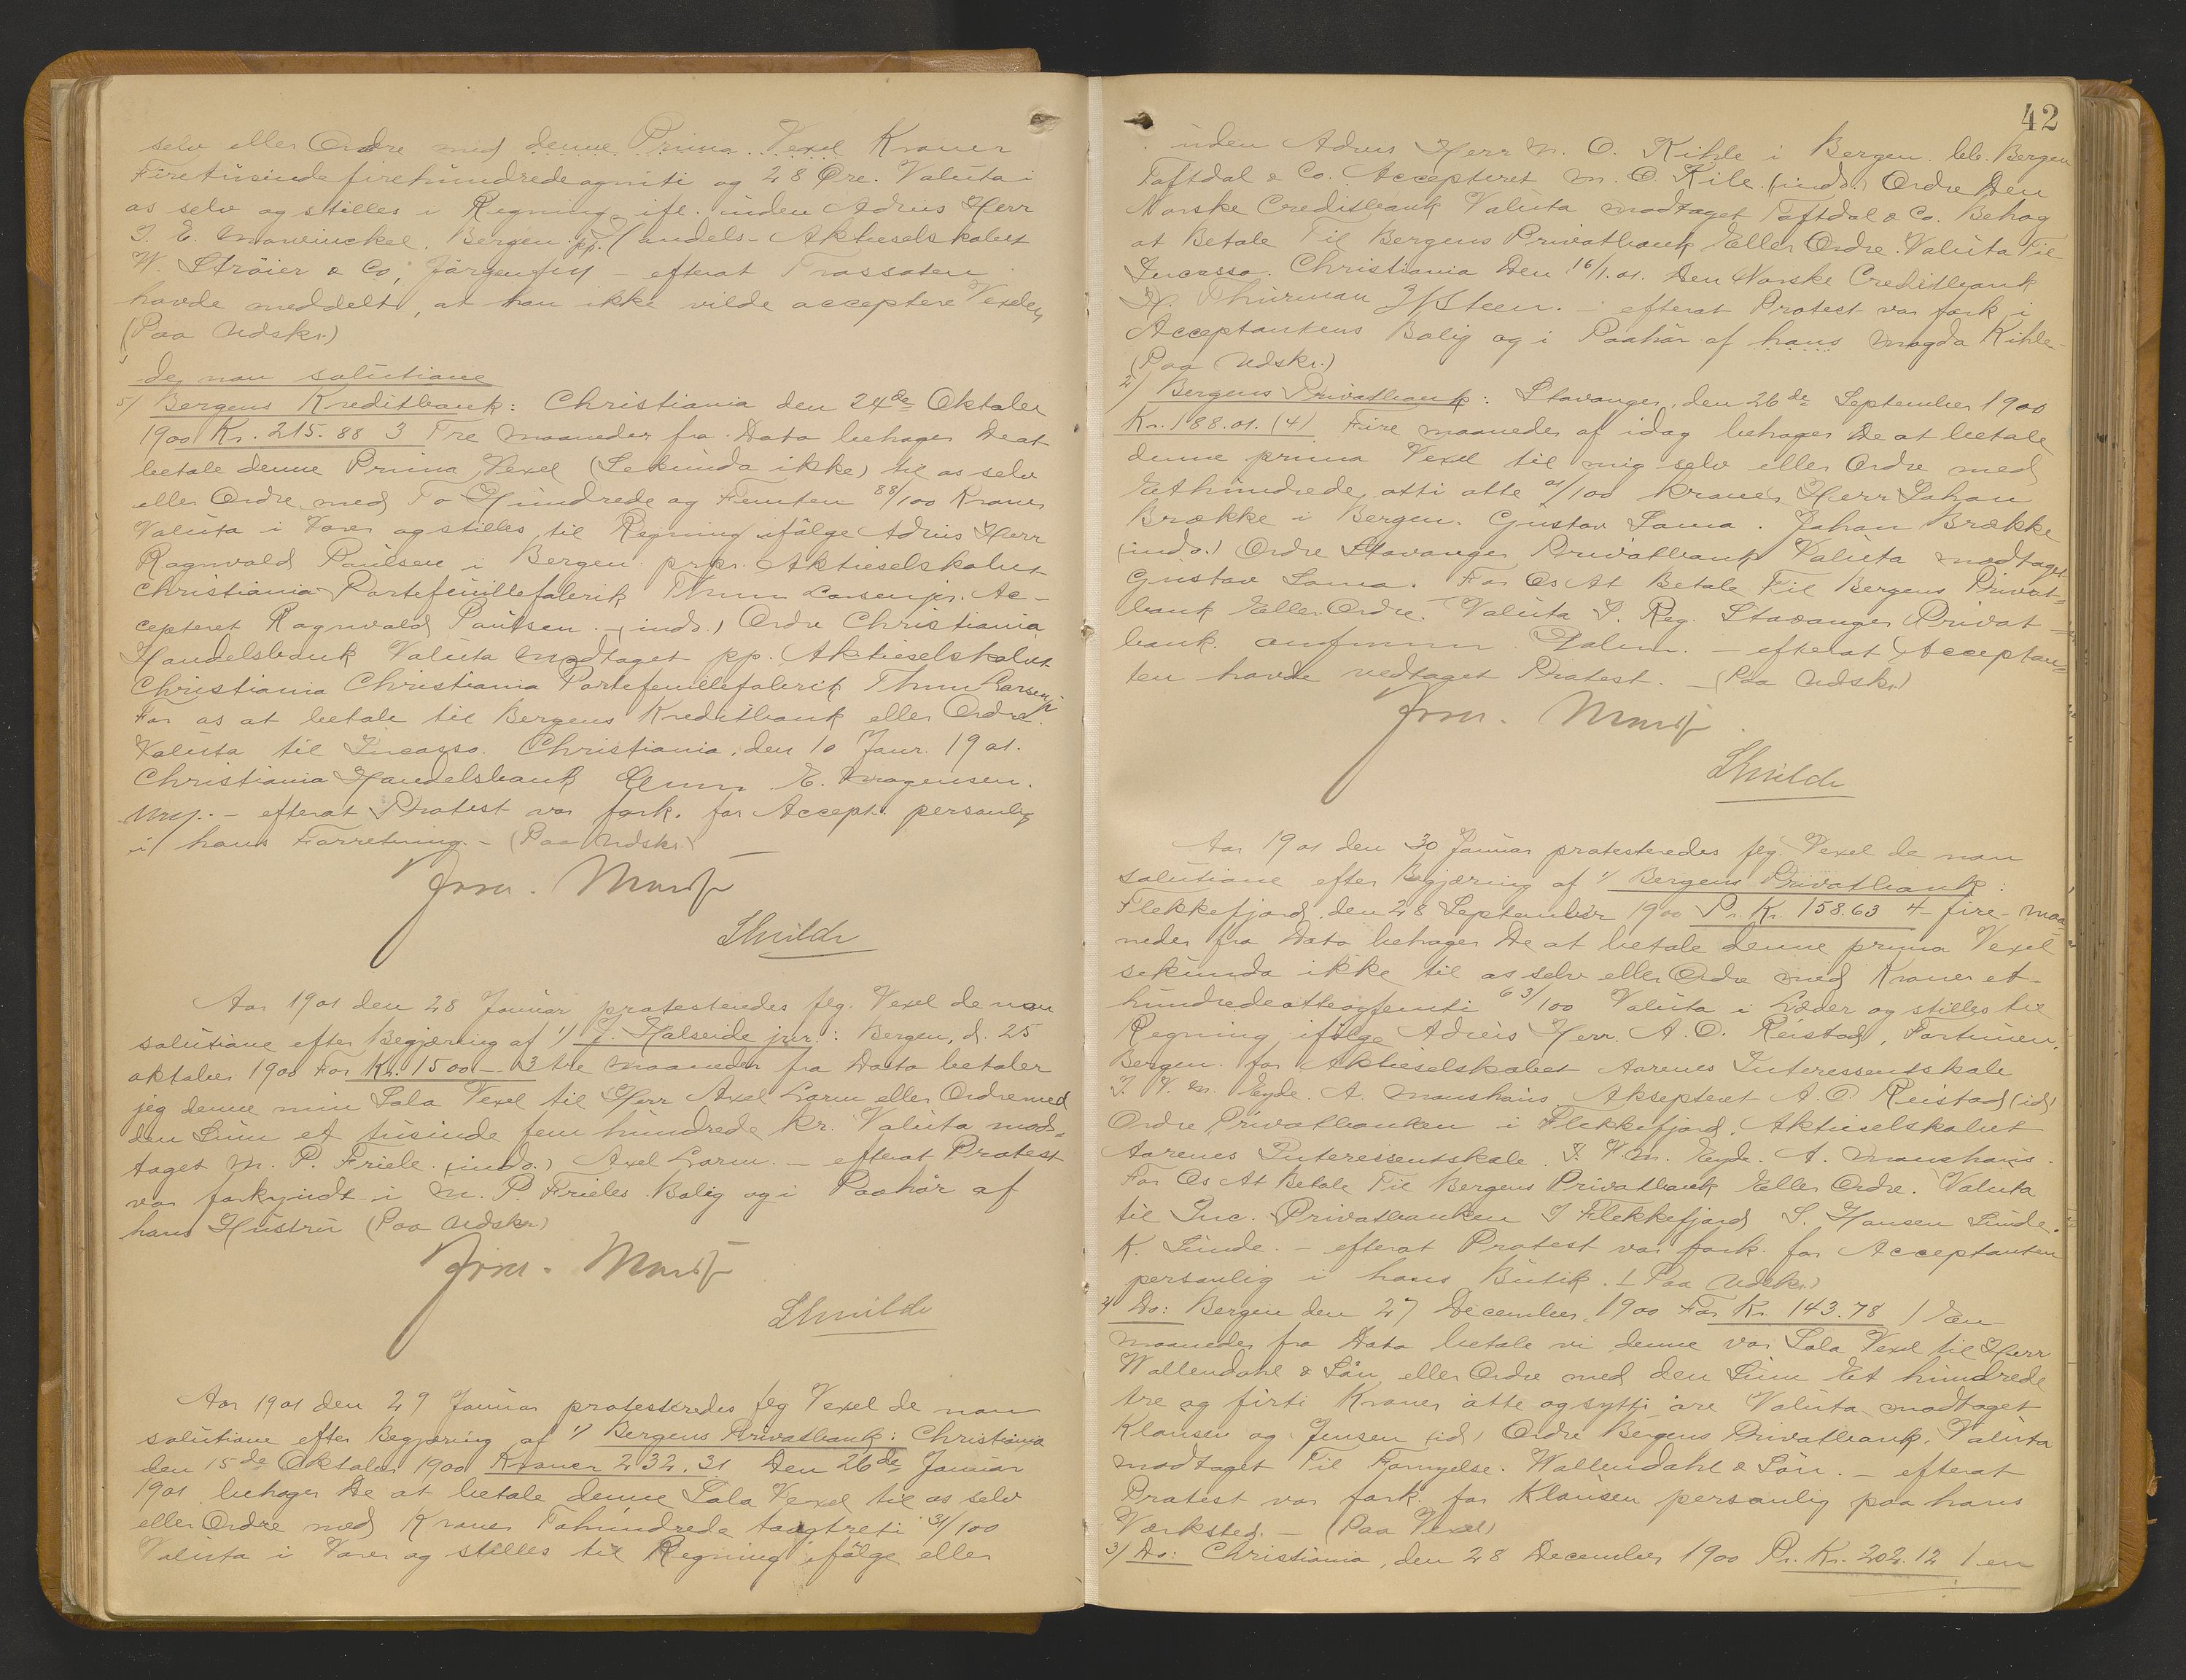 selv eller Ordre med denne Prima Vexel Kroner
Firetusindefirehundredeogniti og 28 Øre. Valuta i
os selv og stilles i Regning ifl. uden Advis Herr
J. E. Mowinckel. Bergen. pp. Handels-Aktieselskabet
W. Ströier & Co, Jörgen - efterat Trassaten
havde meddelt, at han ikke vilde acceptere Vexelen
(Paa Udskr.)
de non solutione
5/ Bergens Kreditbank: Christiania den 24de Oktober
1900 Kr. 215.88 3 Tre Maaneder fra Dato behager De at
betale denne Prima Vexel (Sekunda ikke) til os selv
eller Ordre med To Hundrede og Femten 88/100 Kroner
Valuta i Varer og stilles til Regning ifölge Advis Herr
Ragnvald Paulsen i Bergen prpr. Aktieselskabet
Christiania Portefeuillefabrik Thum Larsen jr. Ac-
cepteret Ragnvald Paulsen. - (indo.) Ordre Christiania
Handelsbank Valuta modtaget pp. Aktieselskabet
Christiania Christiania Portefeuillefabrik Thum Larsen jr
For os at betale til Bergens Kreditbank eller Ordre.
Valuta til Incasso. Christiania, den 10 Janr. 1901.
Christiania Handelsbank E. Mogensen.
- efterat Protest var fork. for Accept. personlig
i hans Forretning. - (Paa Udskr.)
Shmilde
Aar 1901 den 28 Januar protesteredes flg. Vexel de non
solutione efter Begjæring af 1/ J. Halseide junr.: Bergen, d. 25
oktober 1900 For Kr. 1500 - 3 tre Maaneder fra Dato betaler
jeg denne min Sola Vexel til Herr Axel Lorm eller Ordre med
den Sum et tusinde fem hundrede Kr. Valuta mod-
taget M. P. Friele. (indo.) Axel Lorm. - efterat Protest
var forkyndt i M. P. Frieles Bolig og i Paahör af
hans Hustru (Paa Udskr.)
Shmilde
Aar 1901 den 29 Januar protesteredes flg Vexel de non
solutione efter Begjæring af 1/ Bergens Privatbank: Christiania
den 15de Oktober 1900 Kroner 232.31 Den 26de Januar
1901 behager De at betale denne Sola Vexel til os selv
eller Ordre med Kroner Tohundrede toogtreti 31/100
Valuta i Varer og stilles til Regning ifölge eller
42
uden Advis Herr M. O. Kihle i Bergen. bb. Bergen
Toftdal & Co. Accepteret M. O Kile. (indo.) Ordre Den
Norske Creditbank Valuta modtaget Toftdal & Co. Behag
at Betale Til Bergens Privatbank Eller Ordre. Valuta Til
Incasso. Christiania Den 16/1.01. Den Norske Creditbank
N. Thurman HSteen. - efterat Protest var fork i
Acceptantens Bolig og i Paahör af hans Magda Kihle-
(Paa Udskr.)
2/ Bergens Privatbank: Stavanger, den 26de September 1900
Kr. 188.01. (4) Fire maaneder af idag behager De at betale
denne prima Vexel til mig selv eller Ordre med
Ethundrede otti otte 01/100 Kroner Herr Johan
Brække i Bergen. Gustav Soma. Johan Brække
(indo.) Ordre Stavanger Privatbank Valuta modtaget
Gustav Soma. For Os At Betale Til Bergens Privat-
bank Eller Ordre. Valuta I. Reg. Stavanger Privat-
bank. - efterat Acceptan-
ten havde vedtaget Protest. - (Paa Udskr.)
Shmilde
Aar 1901 den 30 Januar protesteredes flg. Vexel de non
solutione efter Begjæring af 1/ Bergens Privatbank:
Flekkefjord, den 28 September 1900 Pr. Kr. 158.63 4 - fire - Maa
neder fra Dato behager De at betale denne prima Vexel
sekunda ikke til os selv eller Ordre med Kroner et-
hundredeotteogfemti 63/100 Valuta i Læder og stilles til
Regning ifölge Advis Herr. A. O. Reistad, Fortunen,
Bergen. for Aktieselskabet Aarenes Interessentskab
J. V. M. Eyde. A. Monshaus Aksepteret A. O. Reistad (id)
Ordre Privatbanken i Flekkefjord. Aktieselskabet
Aarenes Interessentskab. J. V. M. Eyde. A. Monshaus.
For Os At Betale Til Bergens Privatbank Eller Ordre. Valuta
til Inc. Privatbanken I Flekkefjord S. Hansen Sunde.
K. Sunde. - efterat Protest var fork. for Acceptanten
personlig i hans Butik. - (Paa Udskr.)
2/ Do: Bergen den 27 December 1900 For Kr. 143.78 1 En
maaneder fra Dato betale vi denne vor Sola Vexel til Herr
Wallendahl & Sön eller Ordre med den Sum Et hundrede
tre og firti Kroner otte og sytti öre Valuta modtaget
Klausen og Jensen (id) Ordre Bergens Privatbank. Valuta
modtaget Til Fornyelse. Wallendahl & Sön. - efterat
Protest var fork. for Klausen personlig paa hans
Værksted. - (Paa Vexel)
3/ Do: Christiania, den 28 December 1900 Pr. Kr. 202.12 1 en